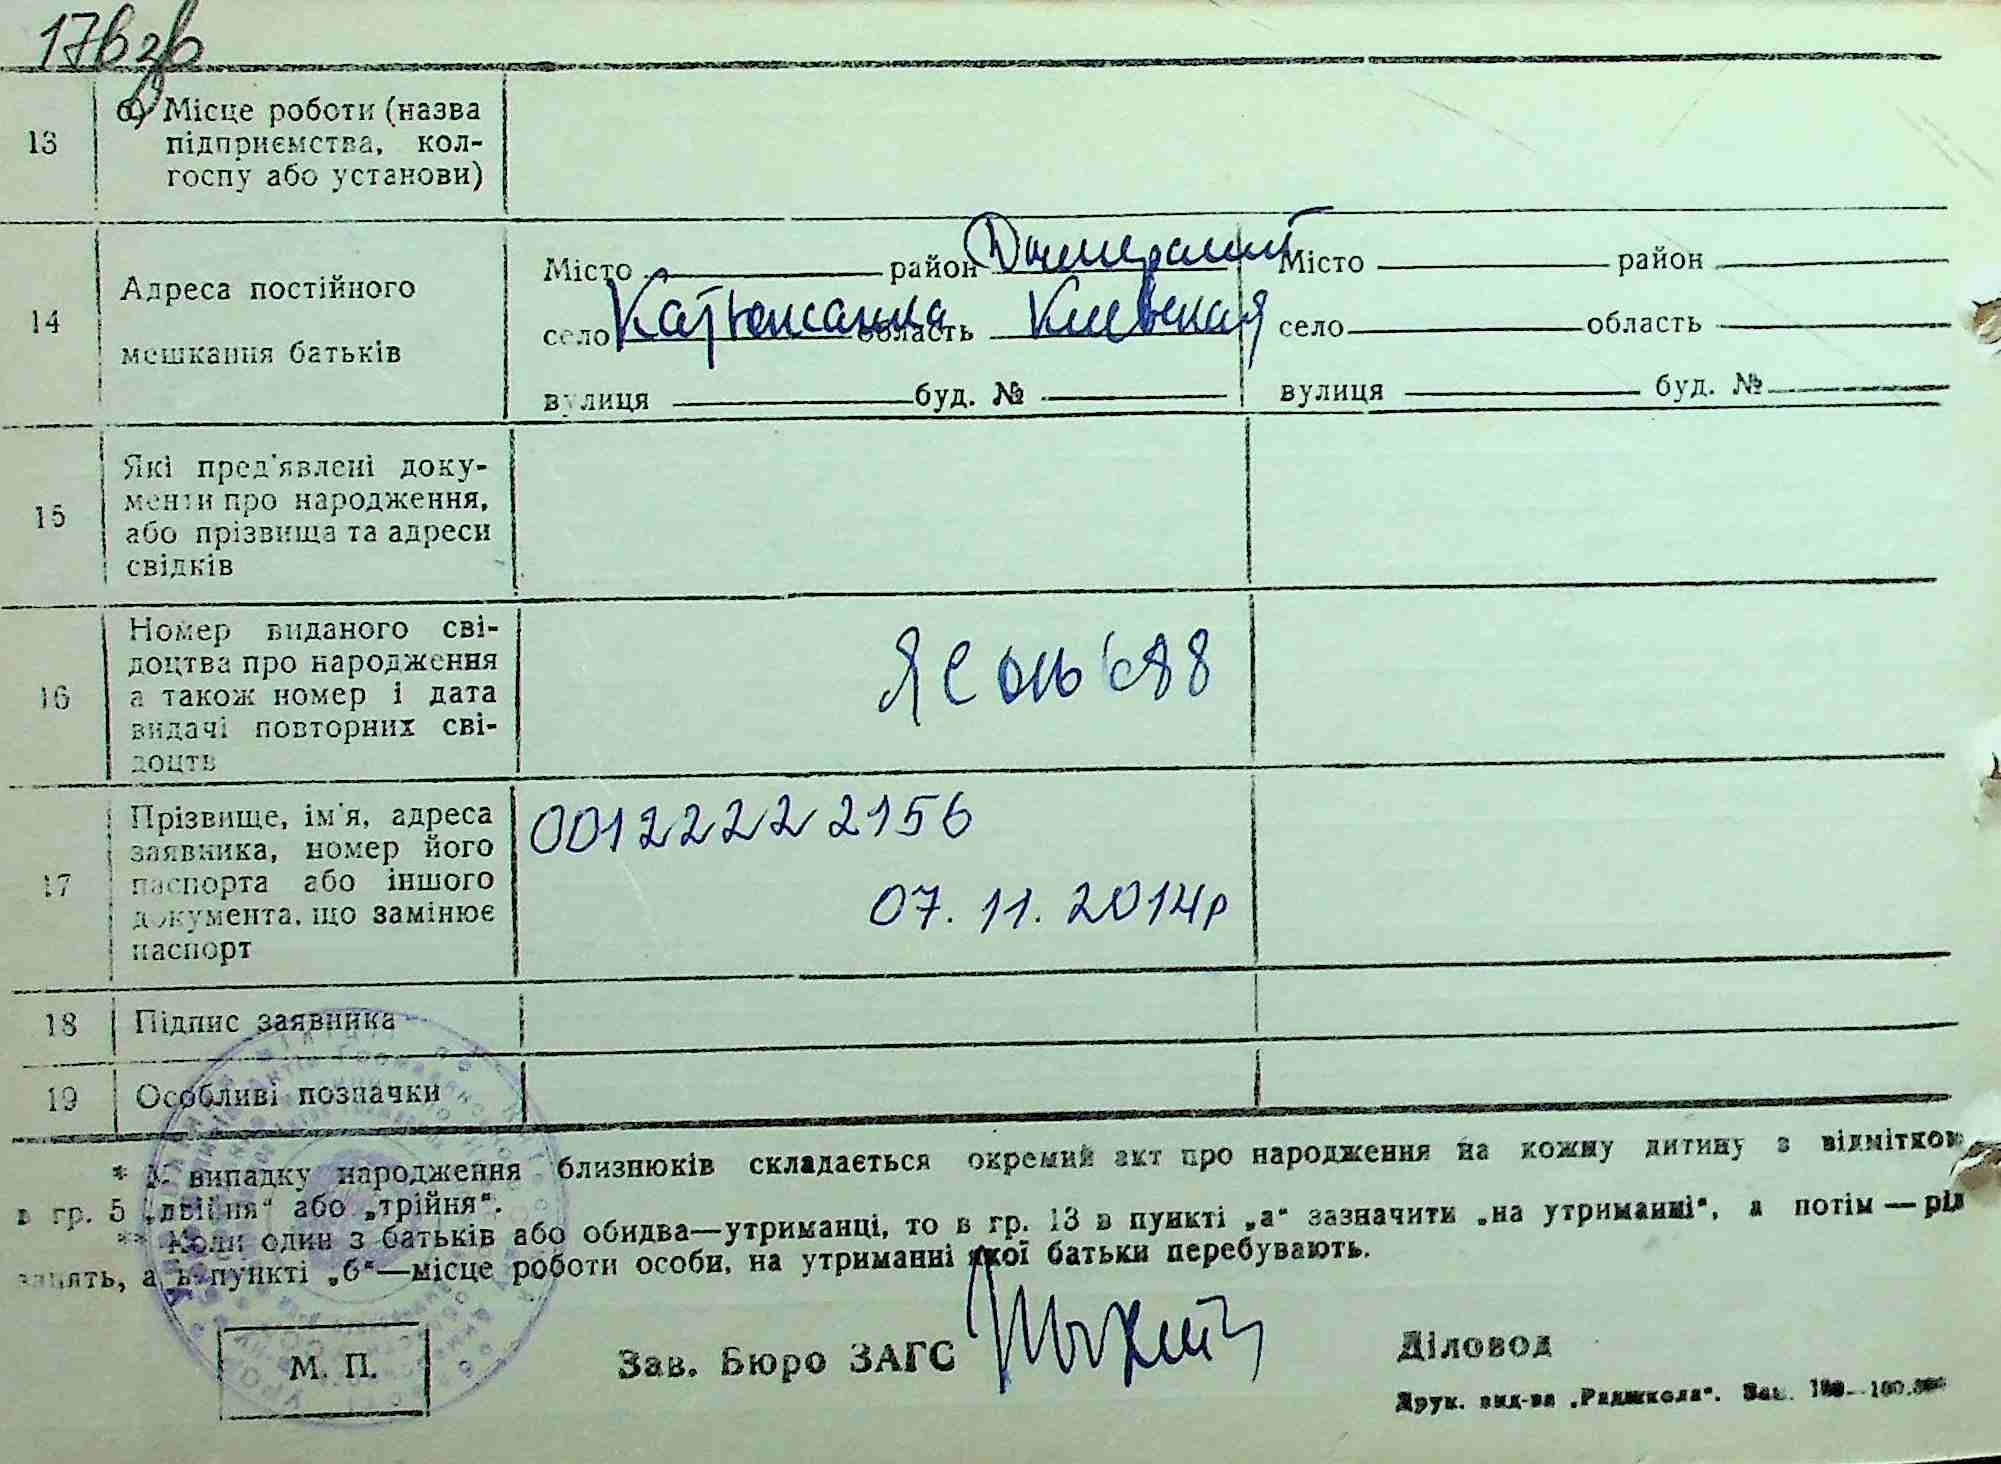 176зв
13
б) Місце роботи (назва
підприємства, кол-
госпу або установи)
14
Адреса постійного
мешкання батьків
Місто район Димерский
село Катюжанка область Киевская
вулиця буд. №
Місто район
село область
вулиця буд. №
15
Які пред'явлені доку-
менти про народження,
або прізвища та адреси
свідків
16
Номер виданого сві-
доцтва про народження
а також номер і дата
видачі повторних сві-
доцтв
ЯС
17
Прізвище, ім'я, адреса
заявника, номер його
паспорта або іншого
документа, що замінює
паспорт
00122222156
07.11.2014р
18
Підпис заявника
19
Особливі позначки
* У випадку народження близнюків складається окремий акт про народження на кожну дитину з відміткою
в гр. 5 „двійня“ або „трійня“.
** Коли один з батьків або обидва—утриманці, то в гр. 13 в пункті „а“ зазначити „на утриманні“, а потім — рід
занять, а в пункті „б“—місце роботи особи, на утриманні якої батьки перебувають.
М. П.
Зав. Бюро ЗАГС
Діловод
Друк. вид-ва „Радшкола“. Зам.